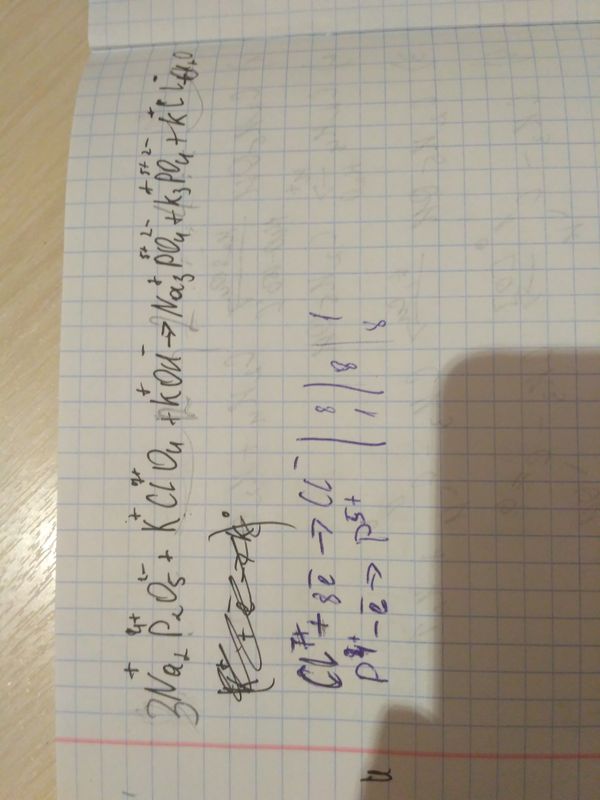 3Na₂P₂O₅ + KClO₄ + KOH → Na₃PO₄ + K₃PO₄ + KCl + H₂O
Cl⁷⁺ + 8ē → Cl⁻ | 8 | 8 | 1
P⁴⁺ - ē → P⁵⁺ | 1 | 8